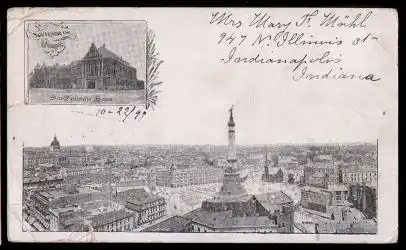 SOUVENIR OF
Das Deutsche Haus
10-22/99
Mrs Mary F. Möhl
947 N. Illinois St
Indianapolis
Indiana